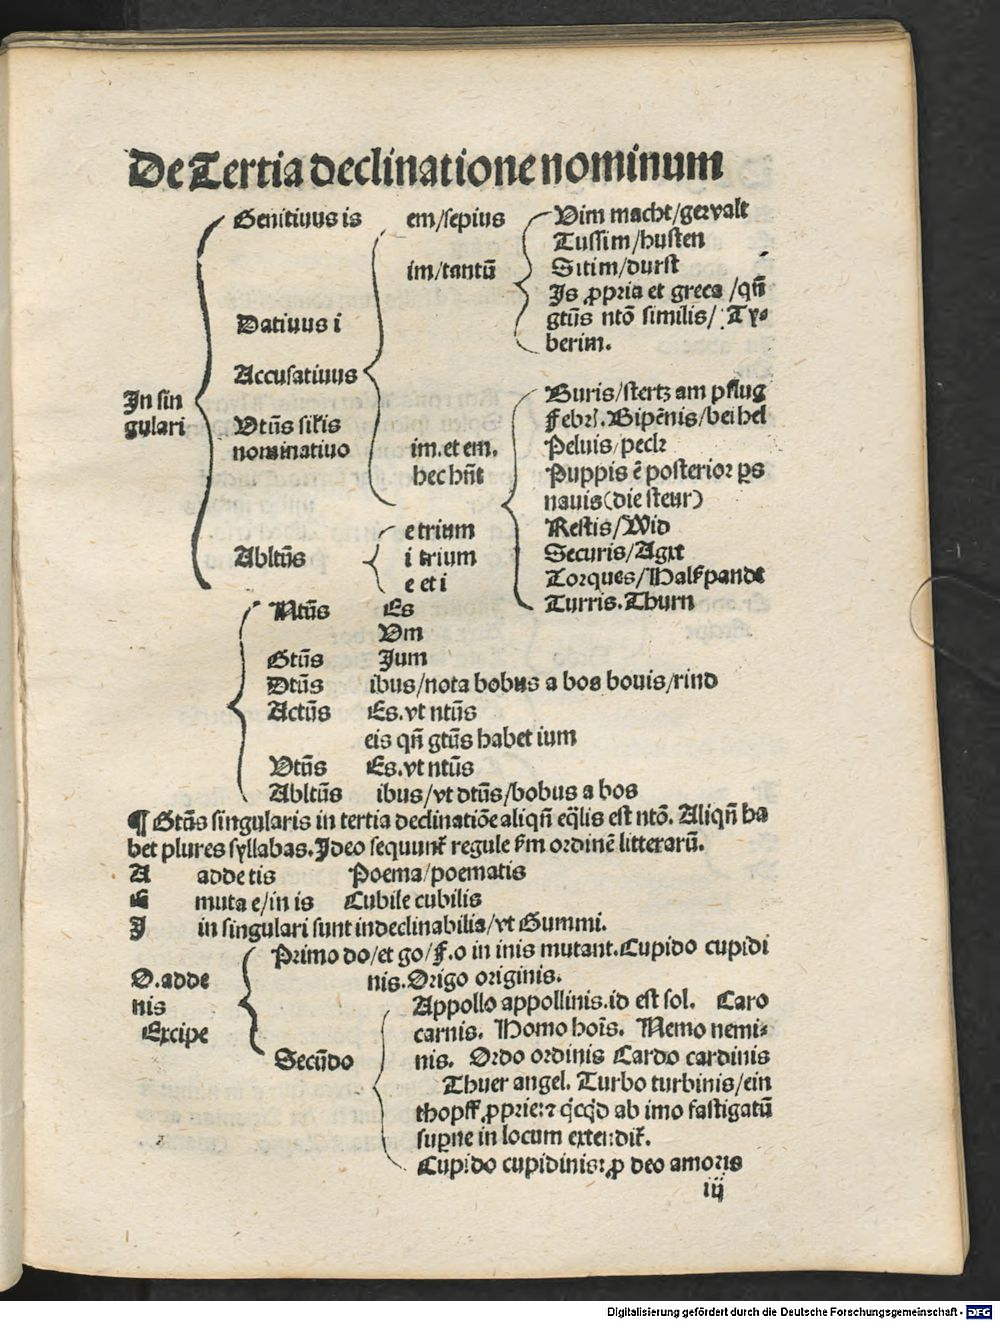 De Tertia declinatione nominum
Genitiuus is
Datiuus i
Accusatiuus
In sin
gulari
Vtũs sił'is
nominatiuo
Abltũs
em/sepius
im/tantũ
im. et em.
hec hñt
e trium
i trium
e et i
Vim macht/gewalt
Tussim/husten
Sitim/durst
Is ꝓpria et greca /qñ
gtũs ntõ similis/ Ty⸗
berim.
Buris/stertz am pflug
Febrł. Bipẽnis/beihel
Peluis/peck
Puppis ẽ posterior ꝑs
nauis (die steur)
Restis/Wid
Securis/Agxt
Torques/Halßpandt
Turris. Thurn
Ntũs Es
Vm
Gtũs Jum
Dtũs ibus/nota bobus a bos bouis/rind
Actũs Es. vt ntũs
eis qñ gtũs habet ium
Vtũs Es. vt ntũs
Abltũs ibus/vt dtũs/bobus a bos
¶ Gtũs singularis in tertia declinatiõe aliqñ eq̃lis est ntõ. Aliqñ ha
bet plures syllabas. Ideo sequunt᷑ regule ẜm ordinẽ litterarũ.
A adde tis Poema/poematis
E muta e/in is Cubile cubilis
I in singulari sunt indeclinabilia/vt Gummi.
O. adde
nis
Excipe
Primo do/et go/f. o in inis mutant. Cupido cupidi
nis. Origo originis.
Secũdo
Appollo appollinis. id est sol. Caro
carnis. Homo hoĩs. Nemo nemi⸗
nis. Ordo ordinis Cardo cardinis
Thuer angel. Turbo turbinis/ein
thopff ꝓprie: ⁊ q̇cq̇d ab imo fastigatũ
supꝛne in locum extendit᷑.
Cupido cupidinis: ꝓ deo amoris
iij
Digitalisierung gefördert durch die Deutsche Forschungsgemeinschaft - DFG